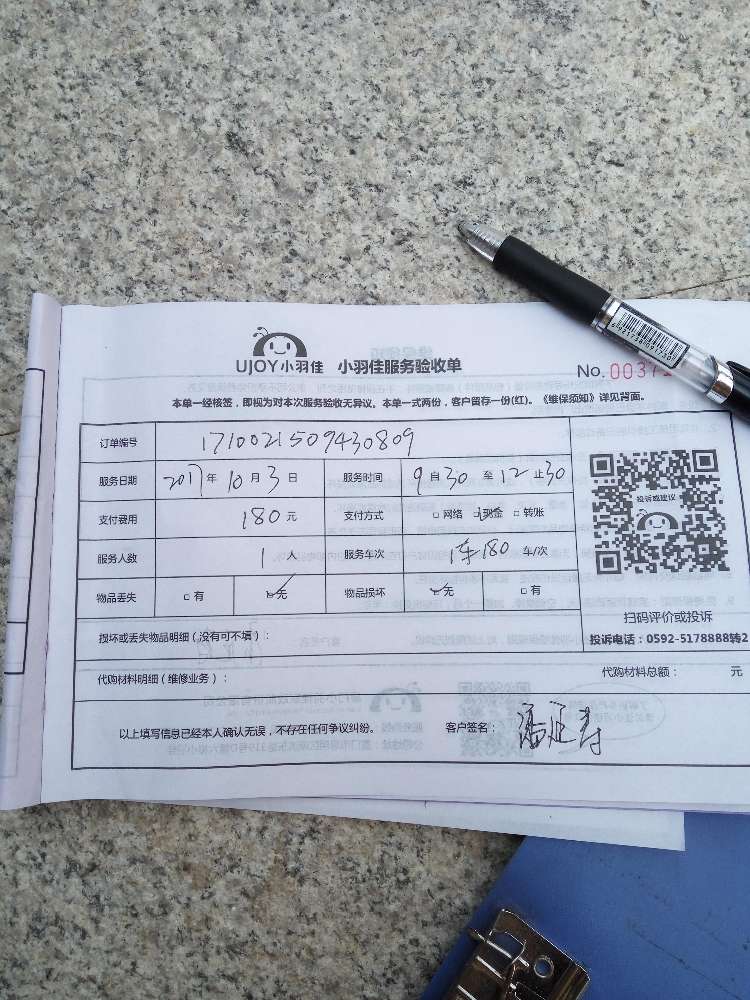 UJOY小羽佳 小羽佳服务验收单
No. 0037
本单一经核签，即视为对本次服务验收无异议。本单一式两份，客户留存一份(红)。《维保须知》详见背面。
订单编号 1710021509430809
服务日期 2017年10月3日 服务时间 9自30至12止30
支付费用 180元 支付方式 □网络 □现金 □转账
服务人数 1人 服务车次 1车180 车/次
物品丢失 □有 □无 物品损坏 □无 □有
投诉或建议
扫码评价或投诉
损坏或丢失物品明细（没有可不填）：
投诉电话：0592-5178888转2
代购材料明细（维修业务）： 代购材料总额： 元
以上填写信息已经本人确认无误，不存在任何争议纠纷。 客户签名：潘延寿